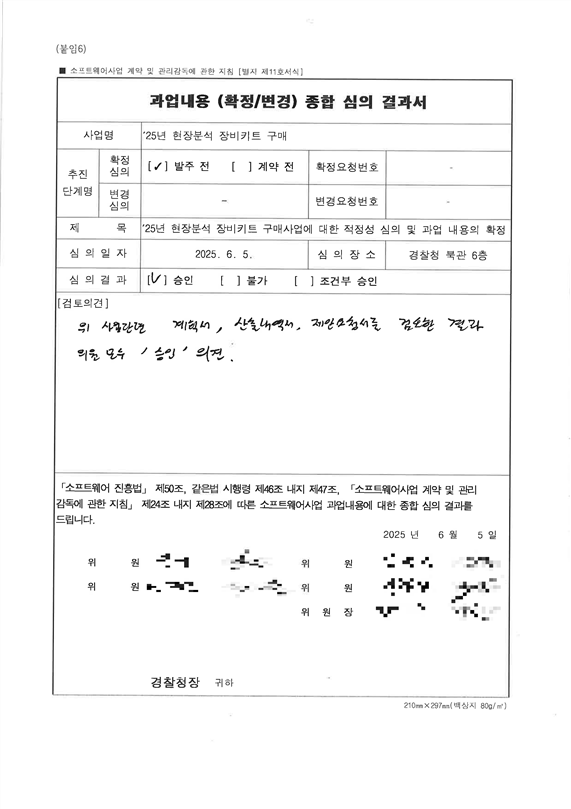 (붙임6)
■ 소프트웨어사업 계약 및 관리감독에 관한 지침 [별지 제11호서식]
과업내용 (확정/변경) 종합 심의 결과서
사업명 '25년 현장분석 장비키트 구매
추진 단계명 확정 심의 [✓] 발주 전 [ ] 계약 전 확정요청번호 -
변경 심의 - 변경요청번호 -
제 목 '25년 현장분석 장비키트 구매사업에 대한 적정성 심의 및 과업 내용의 확정
심 의 일 자 2025. 6. 5. 심 의 장 소 경찰청 북관 6층
심 의 결 과 [✓] 승인 [ ] 불가 [ ] 조건부 승인
[검토의견]
위 사업관련 계획서, 산출내역서, 제안요청서를 검토한 결과
위원 모두 '승인' 의견.
「소프트웨어 진흥법」 제50조, 같은법 시행령 제46조 내지 제47조, 「소프트웨어사업 계약 및 관리
감독에 관한 지침」 제24조 내지 제28조에 따른 소프트웨어사업 과업내용에 대한 종합 심의 결과를
드립니다.
2025 년 6 월 5 일
위 원 위 원
위 원 위 원
위 원 장
경찰청장 귀하
210㎜×297㎜(백상지 80g/㎡)